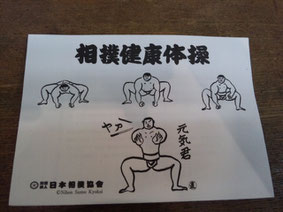 相撲健康体操
ヤァー
元気君
日本相撲協會
©Nihon Sumo Kyokai